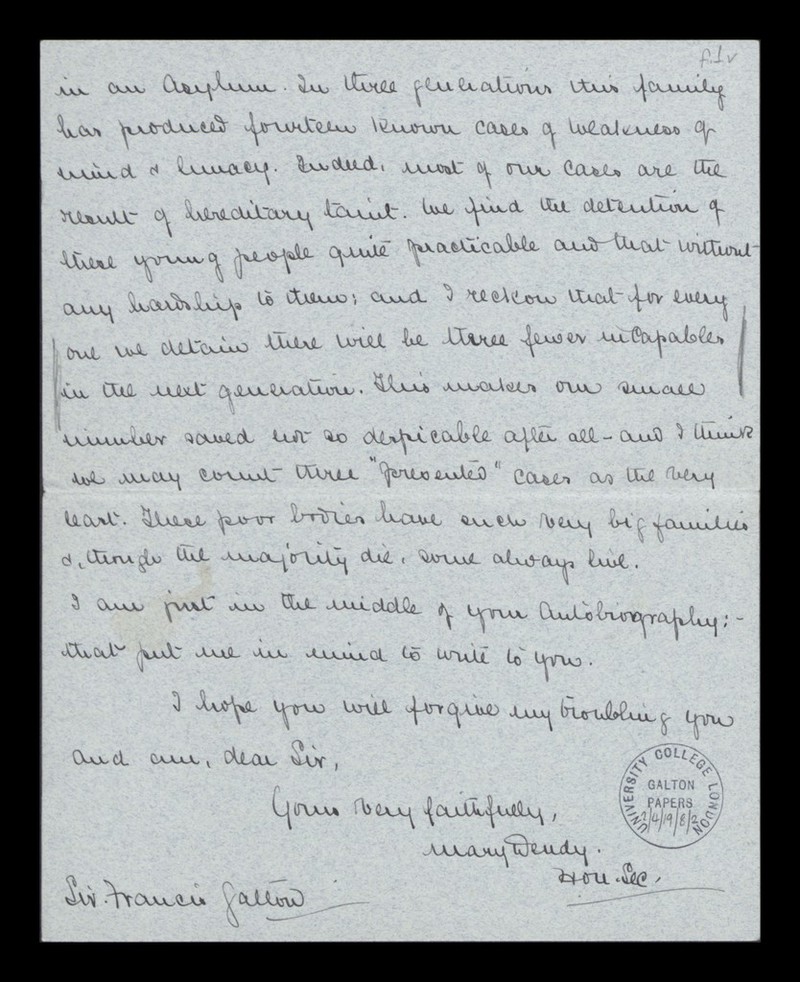 f.1v
in an Asylum. In three generations this family
has produced fourteen known cases of weakness of
mind & lunacy. Indeed, most of our cases are the
result of hereditary taint. We find the detention of
these young people quite practicable and that without
any hardship to them; and I reckon that for every
one we detain there will be three fewer incapables
in the next generation. This makes our small
number saved not so despicable after all - and I think
we may count three "prevented" cases as the very
least. These poor bodies have such very big families
&, though the majority die, some always live.
I am just in the middle of your Autobiography:-
that put me in mind to write to you.
I hope you will forgive my troubling you
and am, dear Sir,
Yours very faithfully,
Mary Dendy.
Hon. Sec.
Sir Francis Galton
UNIVERSITY COLLEGE LONDON
GALTON
PAPERS
2/4/19/8/2